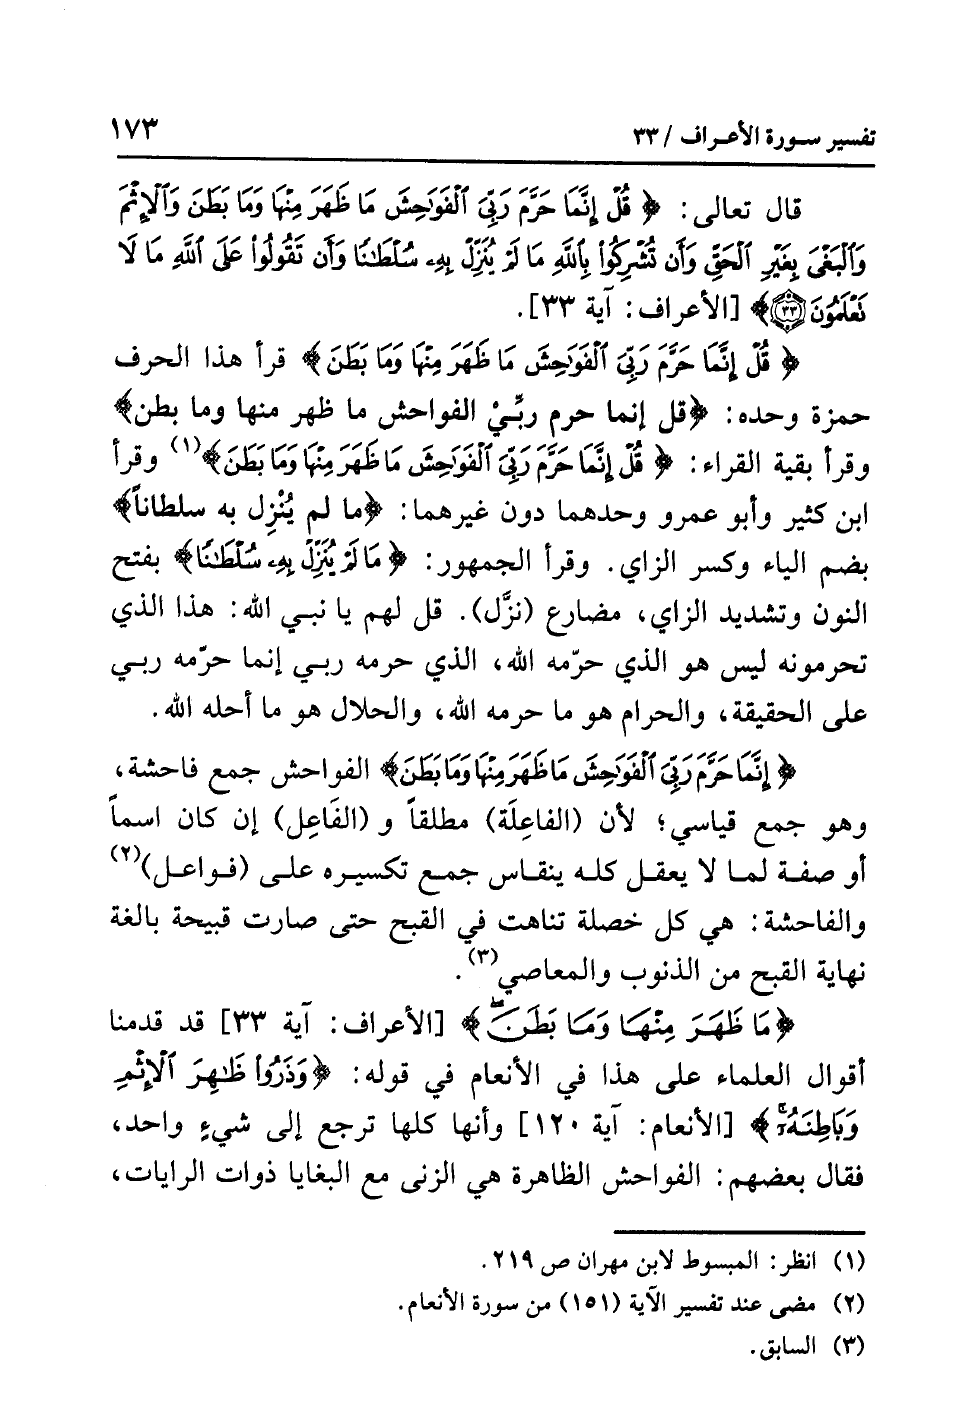 تفسير سورة الأعراف / ٣٣
١٧٣
قال تعالى: ﴿ قُلْ إِنَّمَا حَرَّمَ رَبِّيَ ٱلْفَوَٰحِشَ مَا ظَهَرَ مِنْهَا وَمَا بَطَنَ وَٱلْإِثْمَ
وَٱلْبَغْىَ بِغَيْرِ ٱلْحَقِّ وَأَن تُشْرِكُوا۟ بِٱللَّهِ مَا لَمْ يُنَزِّلْ بِهِۦ سُلْطَٰنًا وَأَن تَقُولُوا۟ عَلَى ٱللَّهِ مَا لَا
تَعْلَمُونَ ٣٣﴾ [الأعراف: آية ٣٣].
﴿ قُلْ إِنَّمَا حَرَّمَ رَبِّيَ ٱلْفَوَٰحِشَ مَا ظَهَرَ مِنْهَا وَمَا بَطَنَ﴾ قرأ هذا الحرف
حمزة وحده: ﴿قل إنما حرم ربِّيْ الفواحش ما ظهر منها وما بطن﴾
وقرأ بقية القراء: ﴿ قُلْ إِنَّمَا حَرَّمَ رَبِّيَ ٱلْفَوَٰحِشَ مَا ظَهَرَ مِنْهَا وَمَا بَطَنَ﴾(١) وقرأ
ابن كثير وأبو عمرو وحدهما دون غيرهما: ﴿ما لم يُنْزِل به سلطاناً﴾
بضم الياء وكسر الزاي. وقرأ الجمهور: ﴿ مَا لَمْ يُنَزِّلْ بِهِۦ سُلْطَٰنًا﴾ بفتح
النون وتشديد الزاي، مضارع (نزَّل). قل لهم يا نبي الله: هذا الذي
تحرمونه ليس هو الذي حرّمه الله، الذي حرمه ربي إنما حرّمه ربي
على الحقيقة، والحرام هو ما حرمه الله، والحلال هو ما أحله الله.
﴿ إِنَّمَا حَرَّمَ رَبِّيَ ٱلْفَوَٰحِشَ مَا ظَهَرَ مِنْهَا وَمَا بَطَنَ﴾ الفواحش جمع فاحشة،
وهو جمع قياسي؛ لأن (الفاعِلَة) مطلقاً و (الفَاعِل) إن كان اسماً
أو صفة لما لا يعقل كله ينقاس جمع تكسيره على (فواعل)(٢)
والفاحشة: هي كل خصلة تناهت في القبح حتى صارت قبيحة بالغة
نهاية القبح من الذنوب والمعاصي(٣).
﴿مَا ظَهَرَ مِنْهَا وَمَا بَطَنَ ۖ﴾ [الأعراف: آية ٣٣] قد قدمنا
أقوال العلماء على هذا في الأنعام في قوله: ﴿وَذَرُوا۟ ظَٰهِرَ ٱلْإِثْمِ
وَبَاطِنَهُۥٓ ۚ﴾ [الأنعام: آية ١٢٠] وأنها كلها ترجع إلى شيءٍ واحد،
فقال بعضهم: الفواحش الظاهرة هي الزنى مع البغايا ذوات الرايات،
(١) انظر: المبسوط لابن مهران ص ٢١٩.
(٢) مضى عند تفسير الآية (١٥١) من سورة الأنعام.
(٣) السابق.